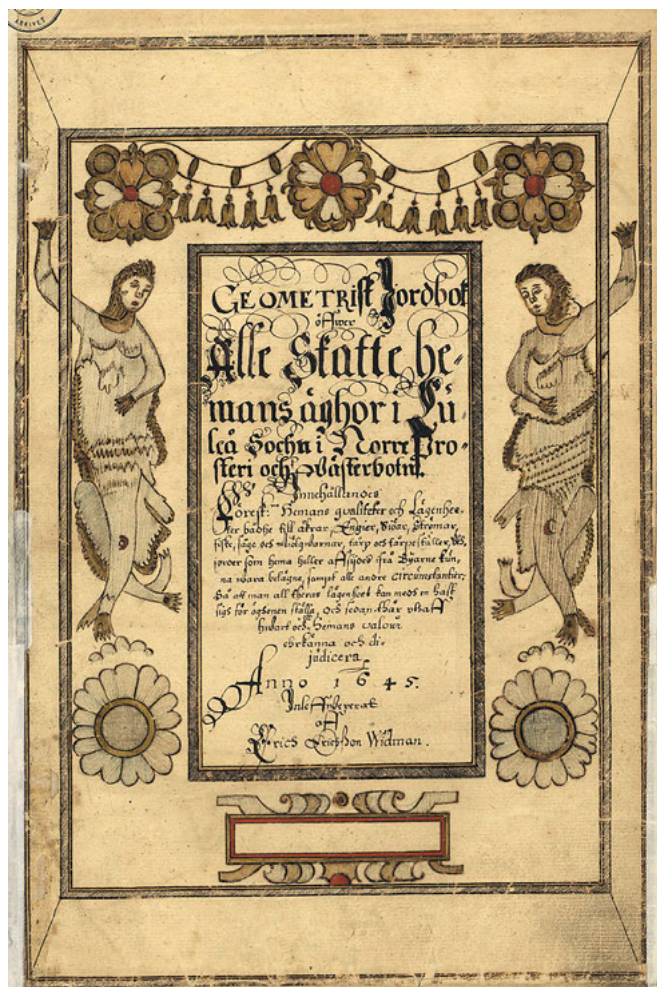 ARKIVET
GEOMETRISK Jordbok
öffwer
Alle Skatte he-
mans äghor i Lu-
leå Sochn i Norre Pro-
steri och Wästerbotn.
Innehållandes
Forest: Hemans qvaliteter och Lägenhee-
ter bådhe till åkrar, Engier, Skoar, Strömar,
fiske, såge och miölqwarnar, tårp och tårpeställer, 
jorder som hema heller afsijdes ifrå Byarne kun,
na wara belägne, sampt alle andre circumstantier;
Så att man all theras lägenheet kan meds en hast
sigs för ögonen ställa, och sedan thär uthaff
hwart och Hemans valour
ehrkänna och di-
judicera.
Anno 1645.
Inleffwererat
aff
Erich Erichson Widman.